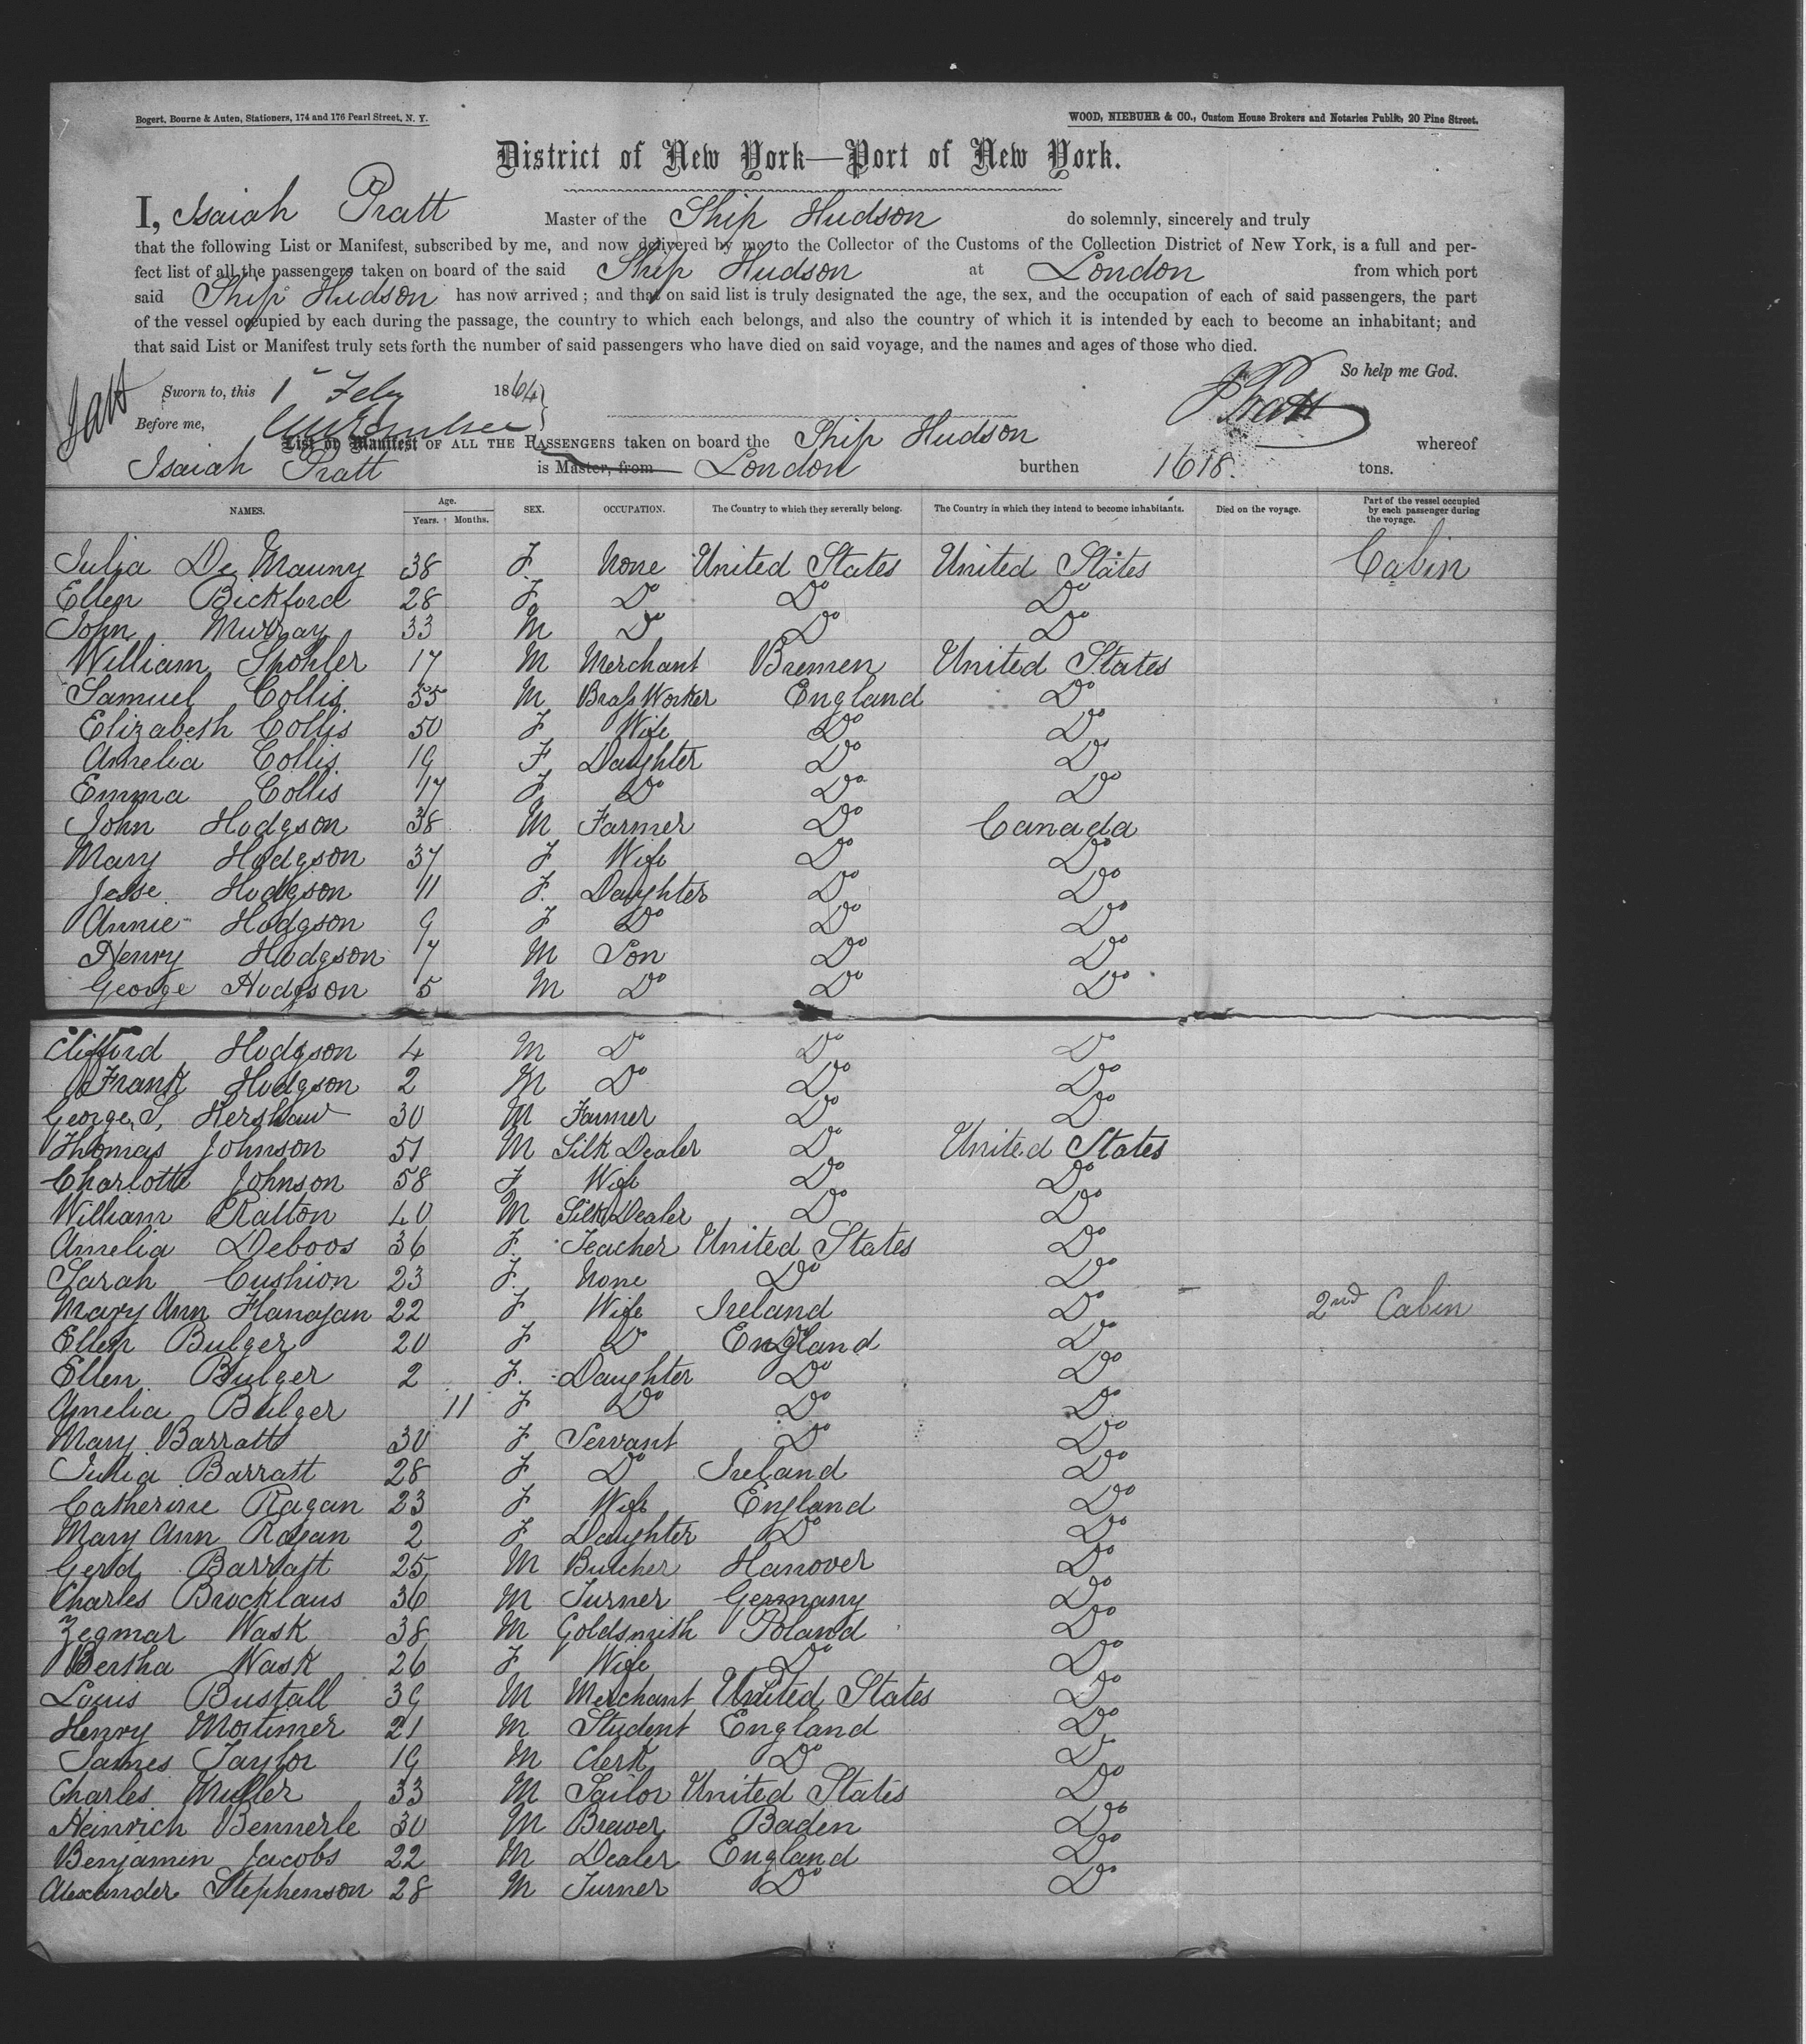 Bogert, Bourne & Auten, Stationers, 174 and 176 Pearl Street, N. Y.
WOOD, NIEBUHR & CO., Custom House Brokers and Notaries Public, 20 Pine Street.
District of New York—Port of New York.
I, Isaiah Pratt Master of the Ship Hudson do solemnly, sincerely and truly
that the following List or Manifest, subscribed by me, and now delivered by me to the Collector of the Customs of the Collection District of New York, is a full and per-
fect list of all the passengers taken on board of the said Ship Hudson at London from which port
said Ship Hudson has now arrived; and that on said list is truly designated the age, the sex, and the occupation of each of said passengers, the part
of the vessel occupied by each during the passage, the country to which each belongs, and also the country of which it is intended by each to become an inhabitant; and
that said List or Manifest truly sets forth the number of said passengers who have died on said voyage, and the names and ages of those who died.
So help me God.
Sworn to, this 1st Feby 1864
I Pratt
Before me,
List or Manifest OF ALL THE PASSENGERS taken on board the Ship Hudson whereof
Isaiah Pratt is Master, from London burthen 1618 tons.
NAMES. Age. Years. Months. SEX. OCCUPATION. The Country to which they severally belong. The Country in which they intend to become inhabitants. Died on the voyage. Part of the vessel occupied by each passenger during the voyage.
Julia De Mauny 38 F. None United States United States Cabin
Ellen Bickford 28 F. Do Do Do
John Murray 33 M Do Do Do
William Spohler 17 M Merchant Bremen United States
Samuel Collis. 55 M Brass Worker England Do
Elizabeth Collis 50 F Wife Do Do
Amelia Collis. 19 F Daughter Do Do
Emma Collis 17 F. Do Do Do
John Hodgson 38 M Farmer Do Canada
Mary Hodgson 37 F Wife Do Do
Jesse Hodgson 11 F. Daughter Do Do
Annie Hodgson 9 F Do Do Do
Henry Hodgson 7 M Son Do Do
George Hodgson 5 M Do Do Do
Clifford Hodgson 4 M Do Do Do
Frank Hodgson 2 M Do Do Do
George S. Kershaw 30 M Farmer Do Do
Thomas Johnson 51 M Silk Dealer Do United States
Charlotte Johnson 58 F Wife Do Do
William Ratton 40 M Silk Dealer Do Do
Amelia Deboos 36 F. Teacher United States Do
Sarah Cushion 23 F. None Do Do
Mary Ann Flanagan 22 F Wife Ireland Do 2nd Cabin
Ellen Bulger 20 F Do England Do
Ellen Bulger 2 F. Daughter Do Do
Amelia Bulger 11 F Do Do Do
Mary Barratt 30 F Servant Do Do
Julia Barratt 28 F Do Ireland Do
Catherine Ragan 23 F Wife England Do
Mary Ann Ragan 2 F Daughter Do Do
Gerd Barratt 25 M Butcher Hanover Do
Charles Brocklaus 36 M Turner Germany Do
Zegmar Wask 38 M Goldsmith Poland Do
Bertha Wask 26 F Wife Do Do
Louis Bustall 39 M Merchant United States Do
Henry Mortimer 21 M Student England Do
James Taylor 19 M Clerk Do Do
Charles Muller 33 M Sailor United States Do
Heinrich Bennerle 30 M Brewer Baden Do
Benjamin Jacobs 22 M Dealer England Do
Alexander Stephenson 28 M Turner Do Do